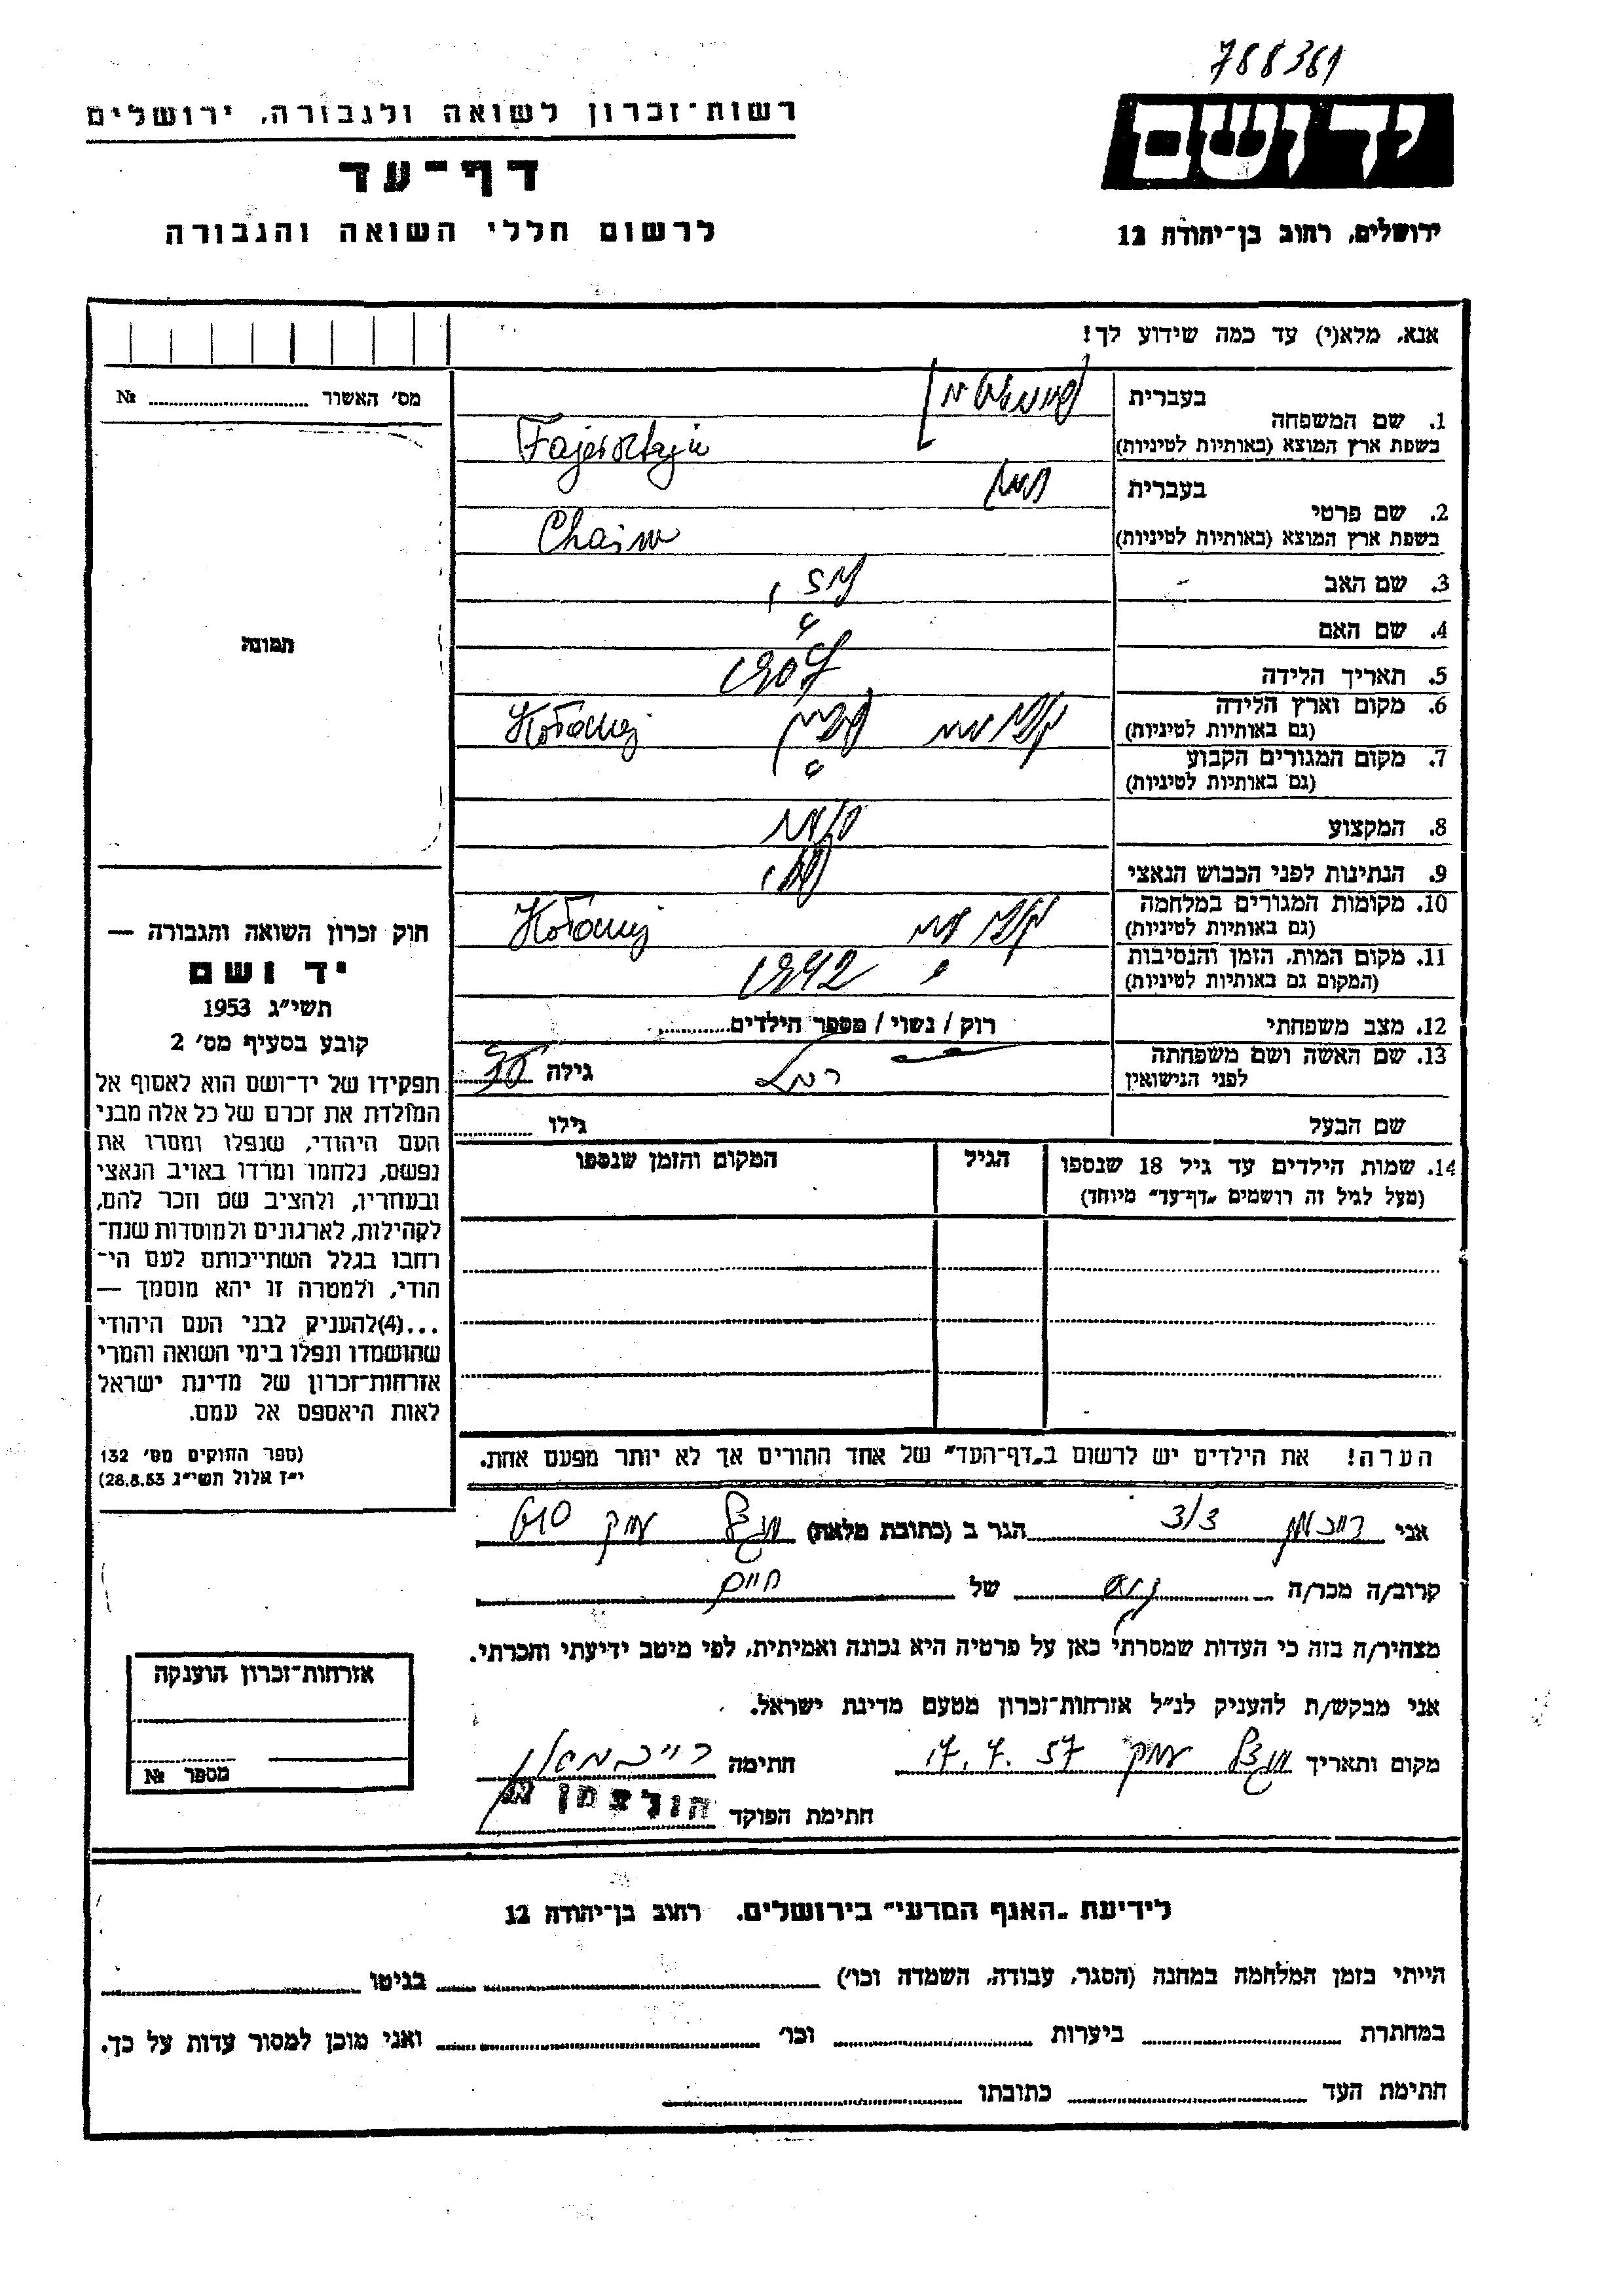 788361
ידושם
רשות־זכרון לשואה ולגבורה, ירושלים
דף־עד
לרשום חללי השואה והגבורה
ירושלים, רחוב בן־יהודה 12
אנא, מלא(י) עד כמה שידוע לך!
מס׳ האשור №
תמונה
1. שם המשפחה
בעברית
בשפת ארץ המוצא (באותיות לטיניות) Fajersztajn
2. שם פרטי
בעברית חיים
בשפת ארץ המוצא (באותיות לטיניות) Chaim
3. שם האב
4. שם האם ?
5. תאריך הלידה 1907
6. מקום וארץ הלידה
(גם באותיות לטיניות) פולין Kołomyj
7. מקום המגורים הקבוע ?
(גם באותיות לטיניות)
8. המקצוע
9. הנתינות לפני הכבוש הנאצי
10. מקומות המגורים במלחמה
(גם באותיות לטיניות) Kołomyj
11. מקום המות, הזמן והנסיבות
(המקום גם באותיות לטיניות) 1942
12. מצב משפחתי רוק / נשוי / מספר הילדים
13. שם האשה ושם משפחתה
לפני הנישואין רחל גילה
שם הבעל גילו
14. שמות הילדים עד גיל 18 שנספו
(מעל לגיל זה רושמים „דף־עד״ מיוחד)
הגיל
המקום והזמן שנספו
הערה! את הילדים יש לרשום ב„דף־העד״ של אחד ההורים אך לא יותר מפעם אחת.
חוק זכרון השואה והגבורה —
יד ושם
תשי״ג 1953
קובע בסעיף מס׳ 2
תפקידו של יד־ושם הוא לאסוף אל
המולדת את זכרם של כל אלה מבני
העם היהודי, שנפלו ומסרו את
נפשם, נלחמו ומרדו באויב הנאצי
ובעוזריו, ולהציב שם וזכר להם,
לקהילות, לארגונים ולמוסדות שנח־
רבו בגלל השתייכותם לעם הי־
הודי, ולמטרה זו יהא מוסמך —
...(4)להעניק לבני העם היהודי
שהושמדו ונפלו בימי השואה והמרי
אזרחות־זכרון של מדינת ישראל
לאות היאספם אל עמם.
(ספר החוקים מס׳ 132
י״ז אלול תשי״ג 28.8.53)
אני רייכמן 3/3 הגר ב (כתובת מלאה)
קרוב/ה מכר/ה של חיים
מצהיר/ה בזה כי העדות שמסרתי כאן על פרטיה היא נכונה ואמיתית, לפי מיטב ידיעתי והכרתי.
אני מבקש/ת להעניק לנ״ל אזרחות־זכרון מטעם מדינת ישראל.
מקום ותאריך 17.7.57 חתימה
חתימת הפוקד הולצמן
אזרחות־זכרון הוענקה
מספר №
לידיעת „האגף המדעי״ בירושלים, רחוב בן־יהודה 12
הייתי בזמן המלחמה במחנה (הסגר, עבודה, השמדה וכו׳) בגיטו
במחתרת ביערות וכו׳ ואני מוכן למסור עדות על כך.
חתימת העד כתובתו